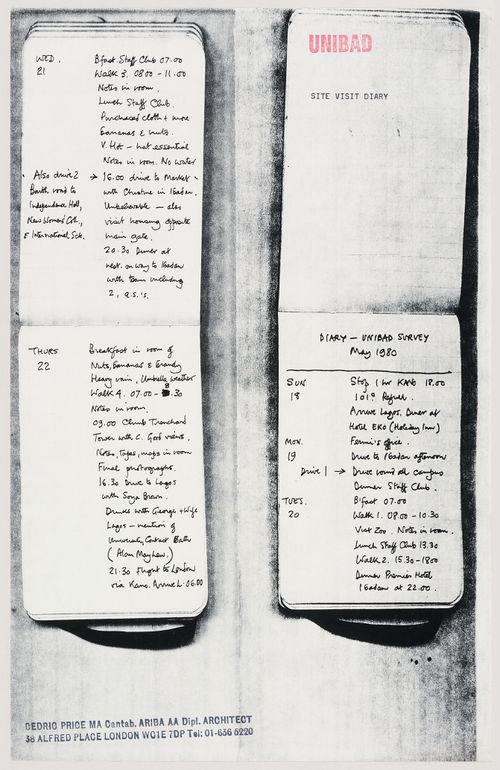 WED.
21
Bfast Staff Club 07.00
Walk 3. 08.00 – 11.00
Notes in room.
Lunch Staff Club.
Purchased cloth + more
bananas & nuts.
V. Hot – hat essential
Notes in room. No water
Also drive 2
Barth road to
Independence Hall,
New Womens Coll.,
& International Sch.
→ 16.00 drive to Market
with Christine in Ibadan.
Unbelievable – also
visit housing opposite
main gate.
20.30 Dinner at
rest. on way to Ibadan
with team including
2, Q.S.'s.
THURS
22
Breakfast in room of
Nuts, bananas & brandy
Heavy rain, Umbrella weather
Walk 4. 07.00 – 8.30
Notes in room.
09.00 Climb Trenchard
Tower with C. Good views.
Notes, Tapes, maps in room
Final photographs.
16.30 Drive to Lagos
with Soya Brown.
Drinks with George + Wife
Lagos – mention of
University, Contact Bath
(Alan Mayhew.)
21.30 Flight to London
via Kano. Arrive L. 06.00
UNIBAD
SITE VISIT DIARY
DIARY – UNIBAD SURVEY
May 1980
SUN
18
Stop 1 hr KANO 18.00
101° Refuel.
Arrive Lagos. Dinner at
Hotel EKO (Holiday Inn)
MON.
19
Femi's office.
Drive to Ibadan afternoon
Drive 1 → Drive round all campus
Dinner Staff Club.
TUES.
20
B'fast 07.00
Walk 1. 08.00 – 10.30
Visit Zoo. Notes in room.
Lunch Staff Club 13.30
Walk 2. 15.30 – 1800
Dinner Premier Hotel
Ibadan at 22.00.
CEDRIC PRICE MA Cantab. ARIBA AA Dipl. ARCHITECT
38 ALFRED PLACE LONDON WC1E 7DP Tel: 01-636 5220